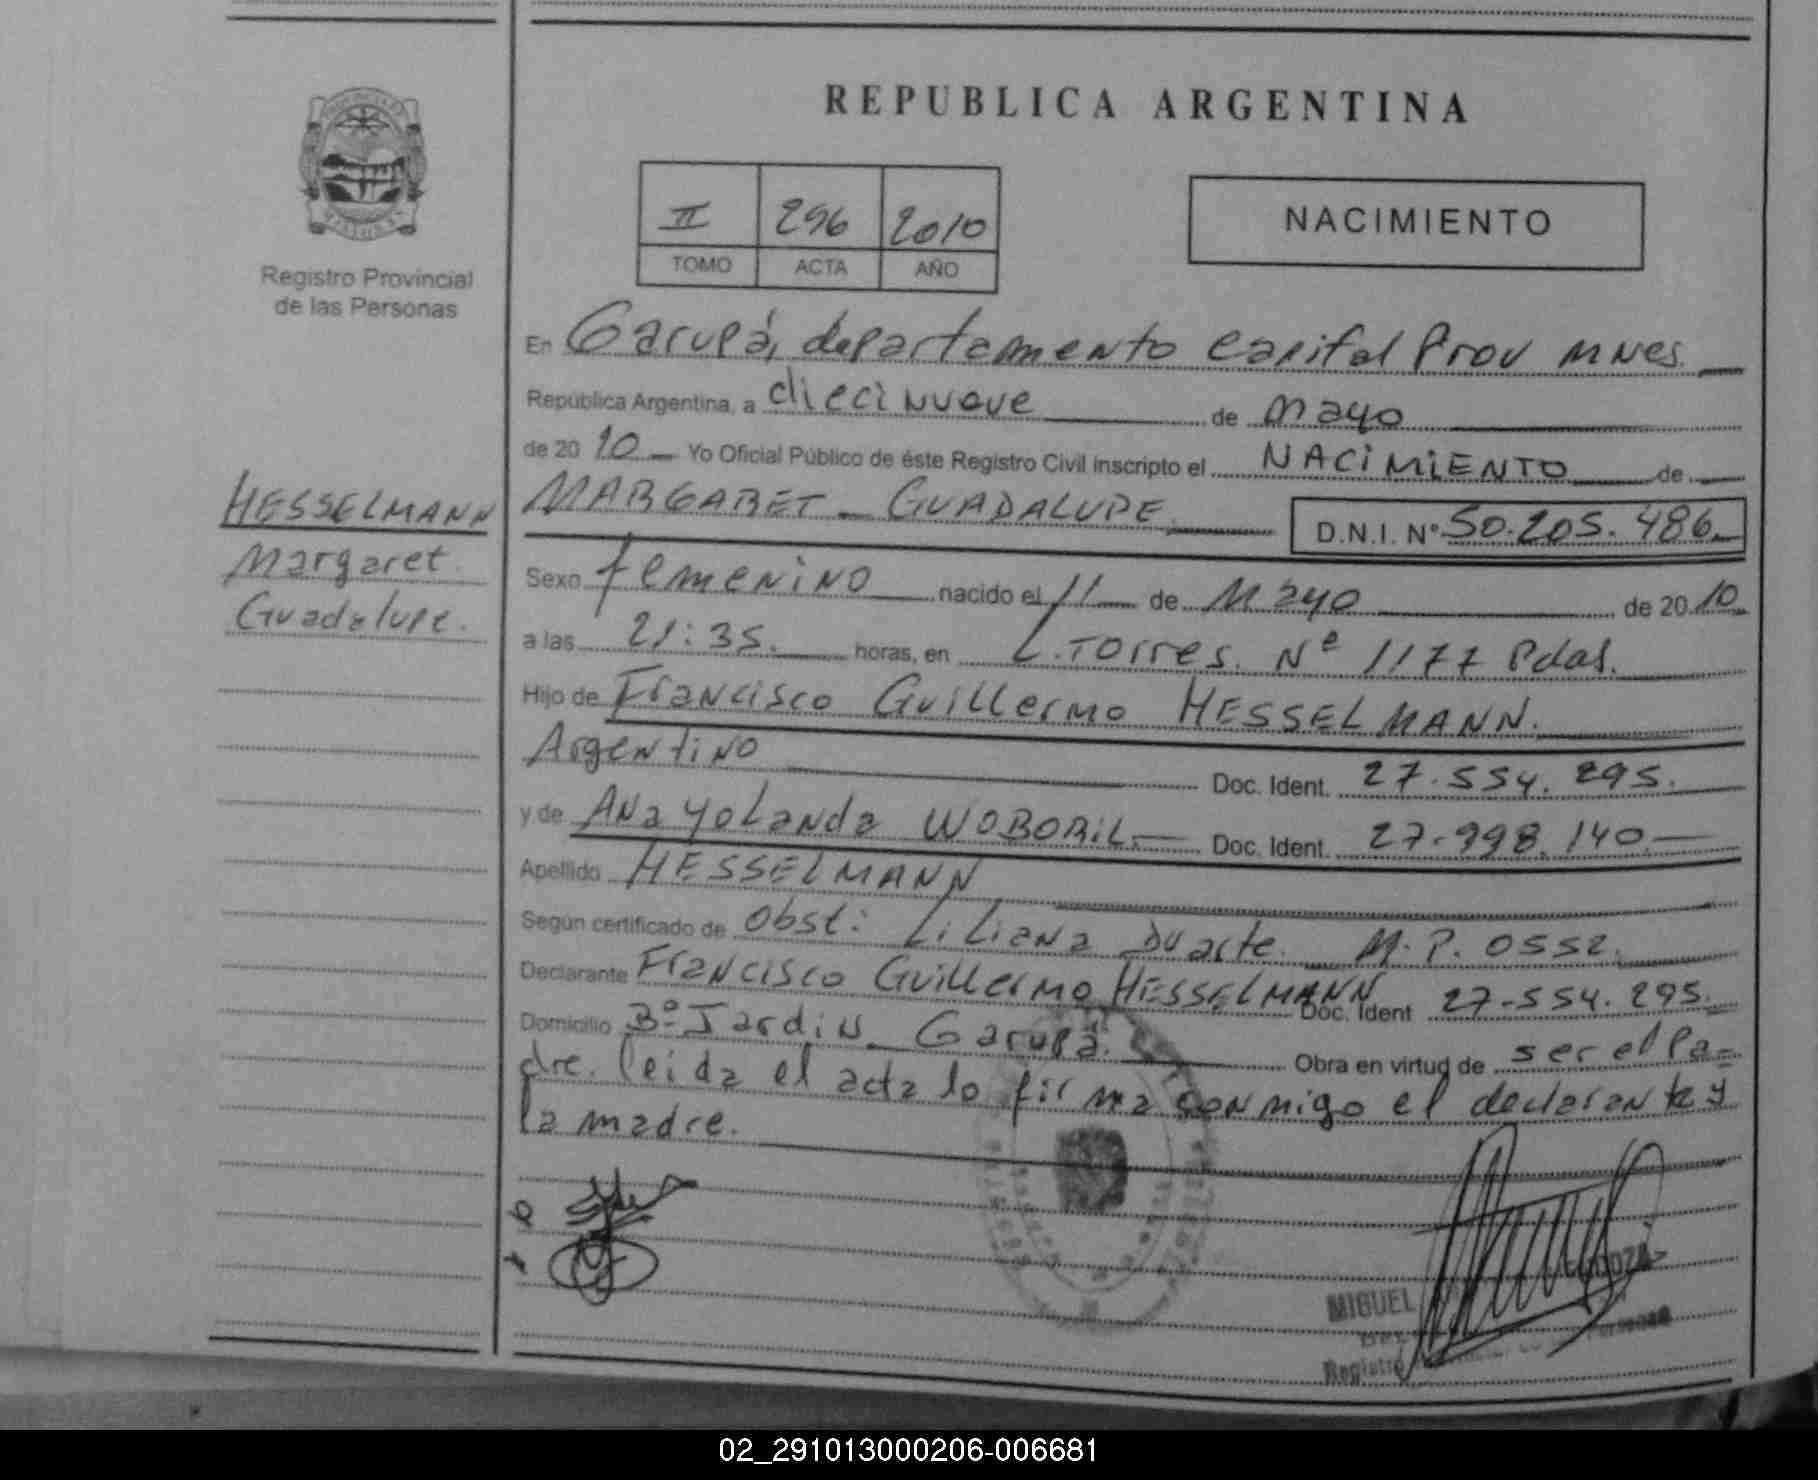 REPUBLICA ARGENTINA
II 296 2010
TOMO ACTA AÑO
NACIMIENTO
Registro Provincial
de las Personas
HESSELMANN
Margaret
Guadalupe.
En Garupá, departamento Capital Prov Mnes.
República Argentina, a diecinueve de Mayo
de 2010 Yo Oficial Público de éste Registro Civil inscripto el NACIMIENTO de
MARGARET GUADALUPE D.N.I. Nº 50.205.486
Sexo femenino nacido el 11 de Mayo de 2010
a las 21:35. horas, en L. Torres. Nº 1177 Pdas.
Hijo de Francisco Guillermo HESSELMANN.
Argentino Doc. Ident. 27.554.295.
y de Ana Yolanda WOBORIL. Doc. Ident. 27.998.140
Apellido HESSELMANN
Según certificado de Obst: Liliana Duarte. M.P. 0552.
Declarante Francisco Guillermo HESSELMANN Doc. Ident 27.554.295.
Domicilio Bº Jardin Garupá. Obra en virtud de ser el Pa-
dre. leida el acta lo firma conmigo el declarante y
la madre.
MIGUEL
Registro
02_291013000206-006681